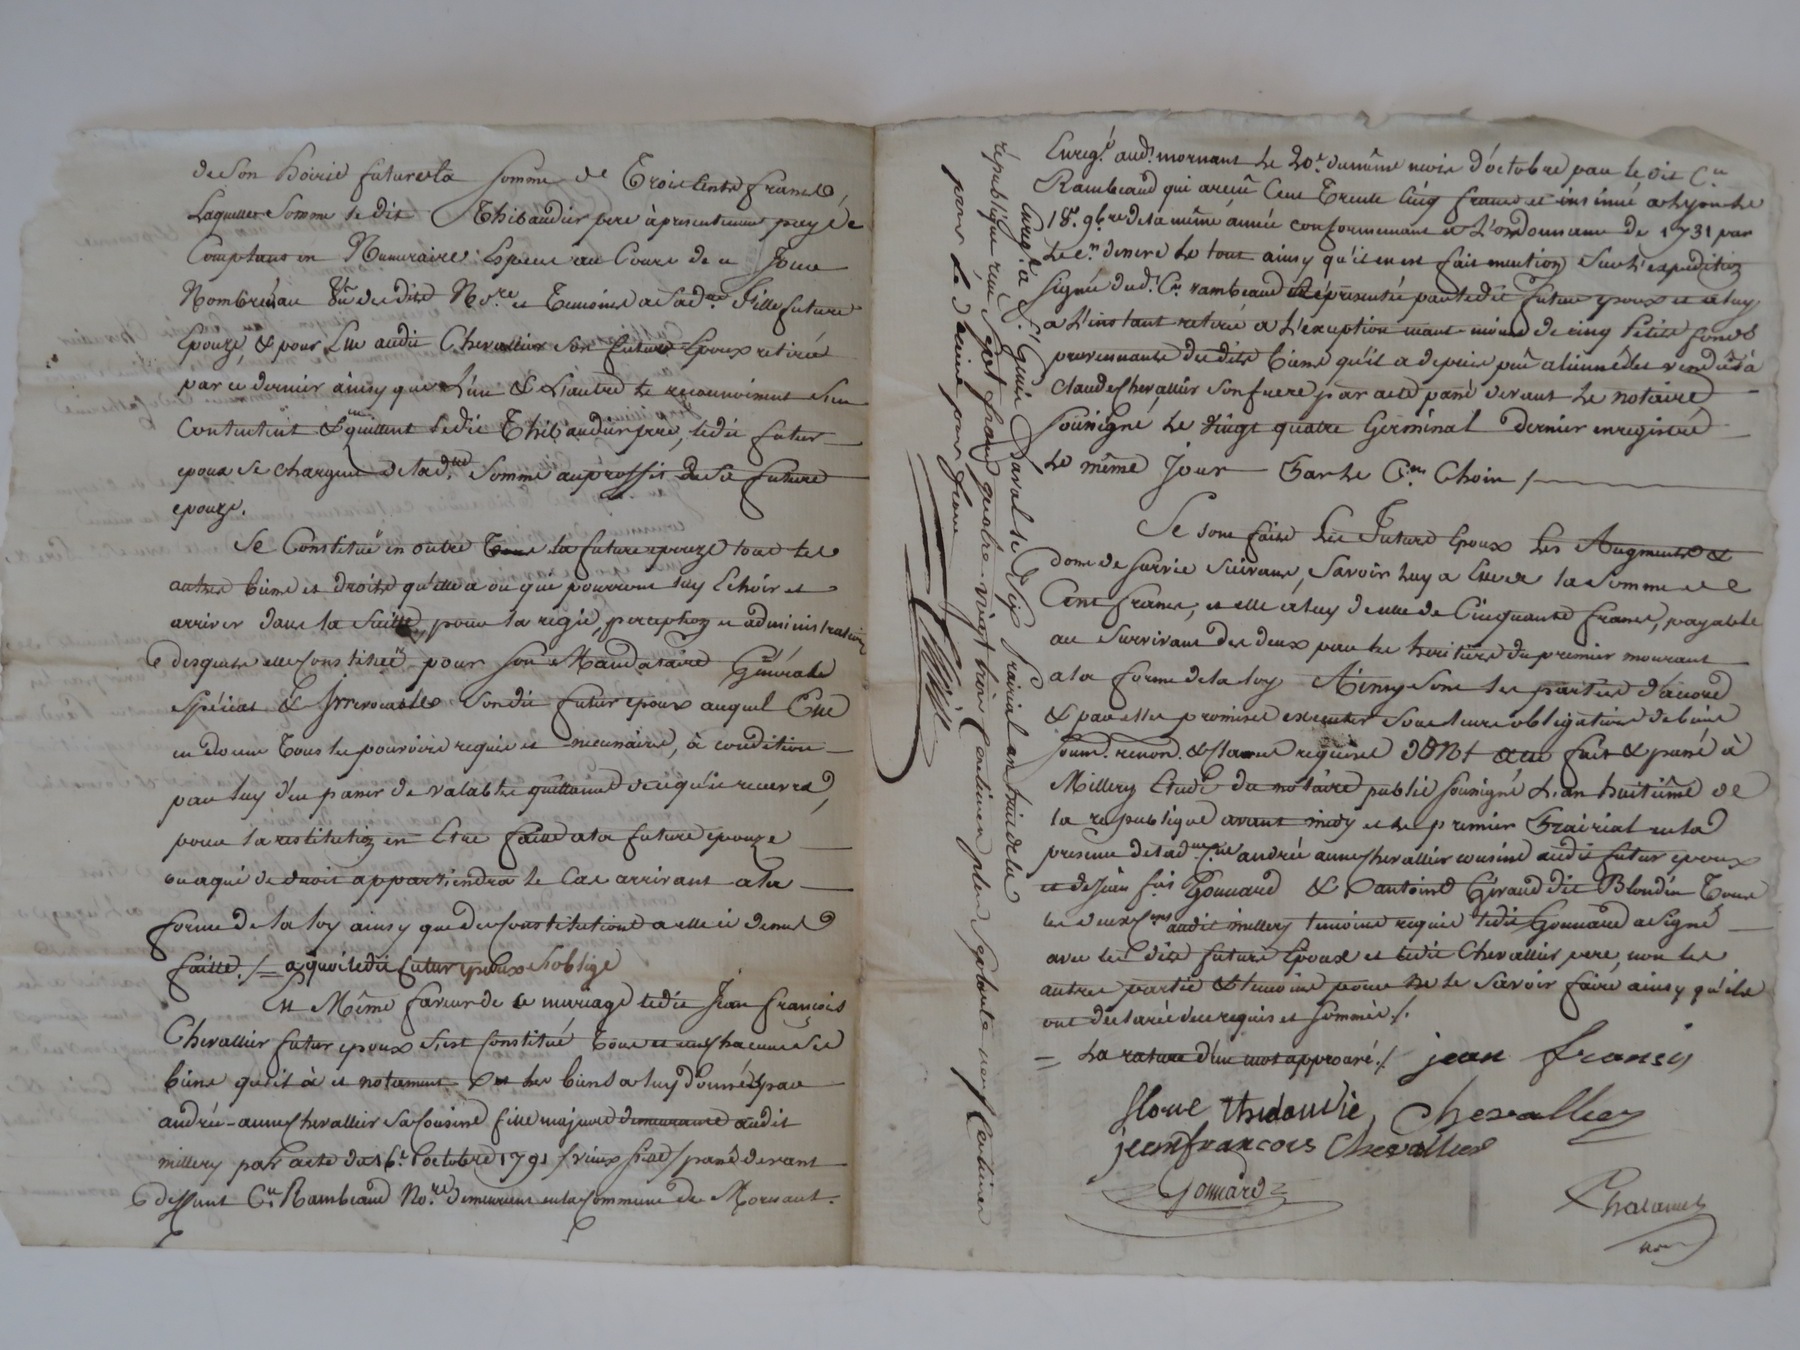 de son hoirie future la somme de Trois Cents francs,
Laquelle somme le dit Thibaudier pere à présentement payée
Comptant en Numeraire Espece au Cours de ce Jour
Nombrée au Vû des dits No.re et Temoins a sad.te fille future
Epouze, & pour Elle audit Chevallier son futur Epoux retirée
par ce dernier ainsy que l'un & L'autre le reconnoissent s'en
Contentent & en quittent ledit Thibaudier pere, ledit futur
epoux se chargeant de lad.te somme au proffit de sa future
epouze.
Se Constitüe en outre la future epouze tous les
autres biens et droits qu'elle a ou qui pourront luy Echoir et
arriver dans la suitte, pour la régie, perception et administration
desquels elle constitüe pour son Mandataire Général
spécial & Irrévocable son dit futur epoux auquel Elle
en donne Tous les pouvoirs requis et necessaire, à condition
par luy d'en passer de valable quittance de ce qu'il recevra,
pour la restitution en Etre faitte a la future epouze
ou a qui de droit appartiendra le Cas arrivant a la
forme de la loy ainsy que des Constitutions a elle ci dessus
faitte ./. = a quoi ledit futur epoux s'oblige
En Même faveur de ce mariage ledit Jean françois
Chevallier futur epoux s'est Constitué Tous et uns chacuns ses
biens qu'il à et notamment les biens a luy donnés par
andrée-anne Chevallier sa Cousine fille majeure demeurante audit
millery par acte du 16.e octobre 1791 /vieux stile/ passé devant
deffunt C.n Rambeaud No.re demeurant en la Commune de Mornant.
Enreg.é aud.t mornant le 20.e du même mois d'octobre par le dit C.n
Rambeaud qui a reçû Cent Trente Cinq francs et insinué a Lyon le
18.e 9bre de la même année conformement a L'ordonnance de 1731 par
le tout ainsy qu'il en est fait mention sur l'expedition
signée dud.t C.n rambeaud représentée par ledit futur epoux et a luy
a L'instant retirée a L'exception de cinq Petits fonds
provennants des dits biens qu'il a depuis peu alienné et vendus à
Claude Chevallier son frere par acte passé devant le notaire
soussigné le vingt quatre Germinal dernier enregistré
le même Jour Par le C.en Choin /
Se sont faits les Futurs Epoux les Augments &
dons de survie suivants, savoir luy a Elle de la somme de
Cent francs, et elle a luy de celle de Cinquante francs, payable
au survivant des deux par les heritiers du premier mourant
a la forme de la loy Ainsy sont les parties d'accord
& par elles promises executer sous leurs obligations de biens
soum.s renon.s & clauses requises DONT acte fait & passé à
Millery Etude du notaire public soussigné L'an huitième de
la republique avant midy et le premier Prairial en la
presence de lad.te andrée anne Chevallier cousine audit futur epoux
et de Jean f.ois Gonnard & d'antoine Giraud dit Blondin Tous
les deux audit millery temoins requis ledit Gonnard a signé
avec les dits futurs Epoux et ledit Chevallier pere, non les
autres parties & temoins pour ne le savoir faire ainsy qu'ils
ont declaré de ce requis et sommés ./.
= La rature d'un mot approuvé ./. jean fransoi
Chevallier
jean francois Chevallier
Gonnard
Enreg.é à S.t Genis Laval le dix prairial an huit de la
république reçu sept francs quatre-vingt trois Centimes plus soixante neuf Centimes
Choin